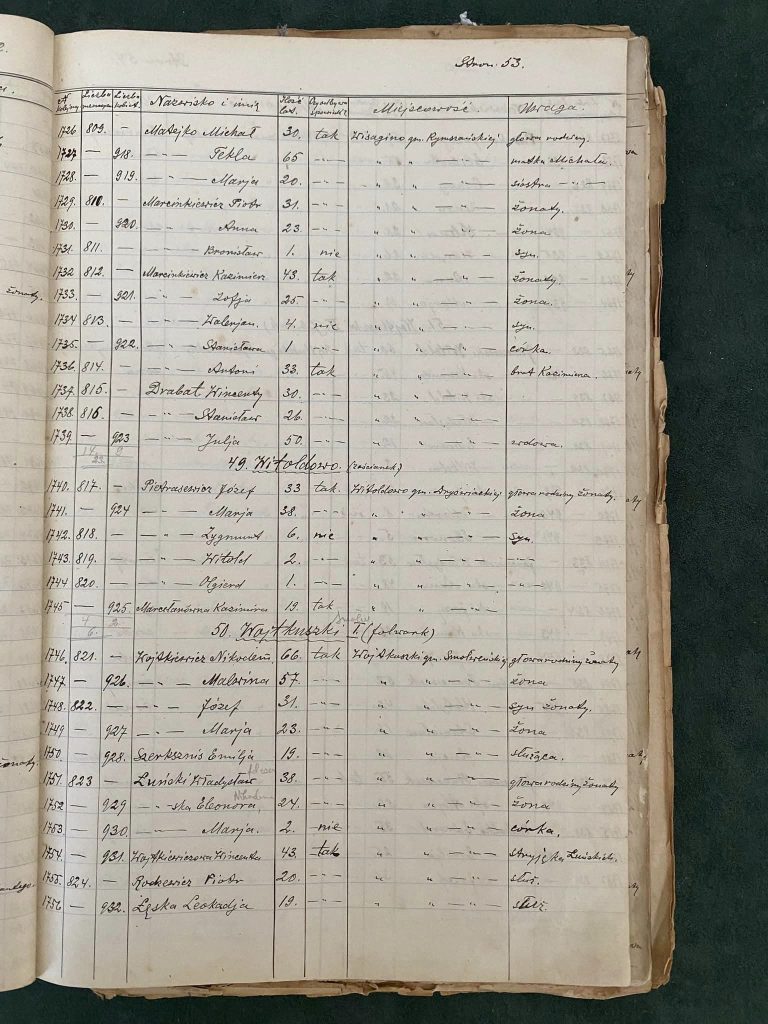 Stron. 53.
№ kolejny Liczba mężczyzn Liczba kobiet Nazwisko i imię Ilość lat. Czy odbywa spowiedź Miejscowość. Uwaga.
1726 809. — Matejko Michał 30. tak Wisagino gm. Rymszańskiej głowa rodziny.
1727 — 918. — " — Tekla 65 — " — " " — " — matka Michała.
1728. — 919. — " — Marja 20. — " — " " — " — siostra — " —
1729. 810. — Marcinkiewicz Piotr 31. — " — " " — " — żonaty.
1730. — 920. — " — Anna 23. — " — " " — " — żona
1731. 811. — — " — Bronisław 1. nie " " — " — syn.
1732 812. — Marcinkiewicz Kazimierz 43. tak " " — " — żonaty.
1733. — 921. — " — Zofja 25. — " — " " — " — żona.
1734 813. — — " — Walerjan. 4. nie " " — " — syn.
1735. — 922. — " — Stanisława 1 — " — " " — " — córka.
1736. 814. — — " — Antoni 33. tak " " — " — brat Kazimierza.
1737. 815. — Drabat Wincenty 30. — " — " " — " —
1738. 816. — — " — Stanisław 26. — " — " " — " —
1739. — 923 — " — Julja 50. — " — " " — " — wdowa.
49. Witoldowo. (zaścianek)
1740. 817. — Pietrasewicz Józef 33 tak Witoldowo gm. Dryświackiej głowa rodziny żonaty.
1741. — 924 — " — Marja 38. — " — " " — " — żona
1742. 818. — — " — Zygmunt 6. nie " " — " — syn.
1743. 819. — — " — Witold 2. — " — " " — " — — " —
1744 820. — — " — Olgierd 1. — " — " " — " — — " —
1745 — 925. Marcelanówna Kazimira 19. tak " " — " —
50. Wojtkuszki I. (folwark)
1746. 821. — Wojtkiewicz Nikodem 66. tak Wojtkuszki gm. Smołweńskiej głowa rodziny żonaty
1747. — 926. — " — Malwina 57. — " — " " — " — żona
1748. 822. — — " — Józef 31. — " — " " — " — syn żonaty.
1749. — 927. — " — Marja 23. — " — " " — " — żona
1750. — 928. Szerksznis Emilja 19. — " — " " — " — służąca.
1751. 823 — Łuński Władysław 38. — " — " " — " — głowa rodziny żonaty
1752 — 929 — " — ska Eleonora, 24. — " — " " — " — żona
1753 — 930. — " — Marja. 2. nie " " — " — córka.
1754. — 931. Wojtkiewiczowa Wincenta 43. tak " " — " — stryjęka Łuńskich.
1755. 824. — Rodziewicz Piotr 20. — " — " " — " — służ.
1756 — 932. Łęska Leokadja 19. — " — " " — " — służ.